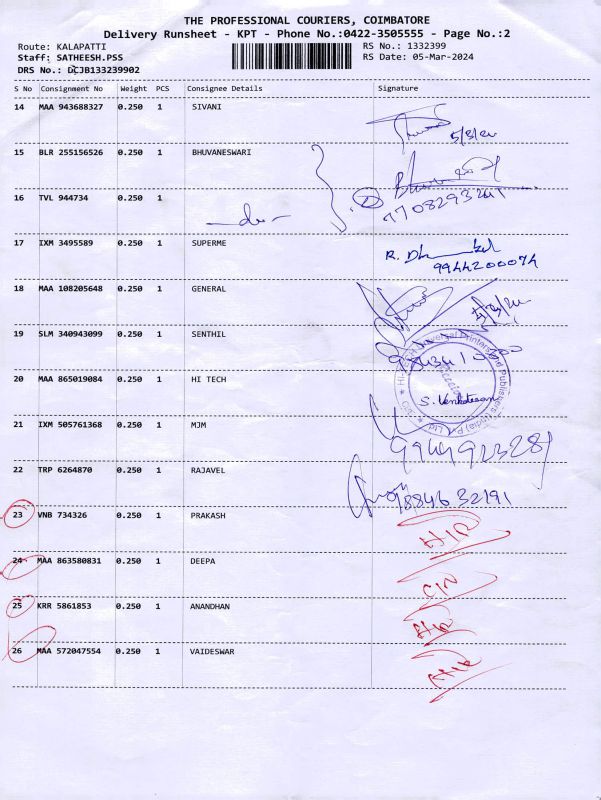 THE PROFESSIONAL COURIERS, COIMBATORE
Delivery Runsheet - KPT - Phone No.:0422-3505555 - Page No.:2
Route: KALAPATTI RS No.: 1332399
Staff: SATHEESH.PSS RS Date: 05-Mar-2024
DRS No.: DCJB133239902
S No Consignment No Weight PCS Consignee Details Signature
14 MAA 943688327 0.250 1 SIVANI
5/3/24
15 BLR 255156526 0.250 1 BHUVANESWARI
16 TVL 944734 0.250 1
7708293241
17 IXM 3495589 0.250 1 SUPERME
9944200074
18 MAA 108205648 0.250 1 GENERAL
19 SLM 340943099 0.250 1 SENTHIL
20 MAA 865019084 0.250 1 HI TECH
S. Venkatesan
21 IXM 505761368 0.250 1 MJM
22 TRP 6264870 0.250 1 RAJAVEL
9884632191
23 VNB 734326 0.250 1 PRAKASH
24 MAA 863580831 0.250 1 DEEPA
25 KRR 5861853 0.250 1 ANANDHAN
26 MAA 572047554 0.250 1 VAIDESWAR